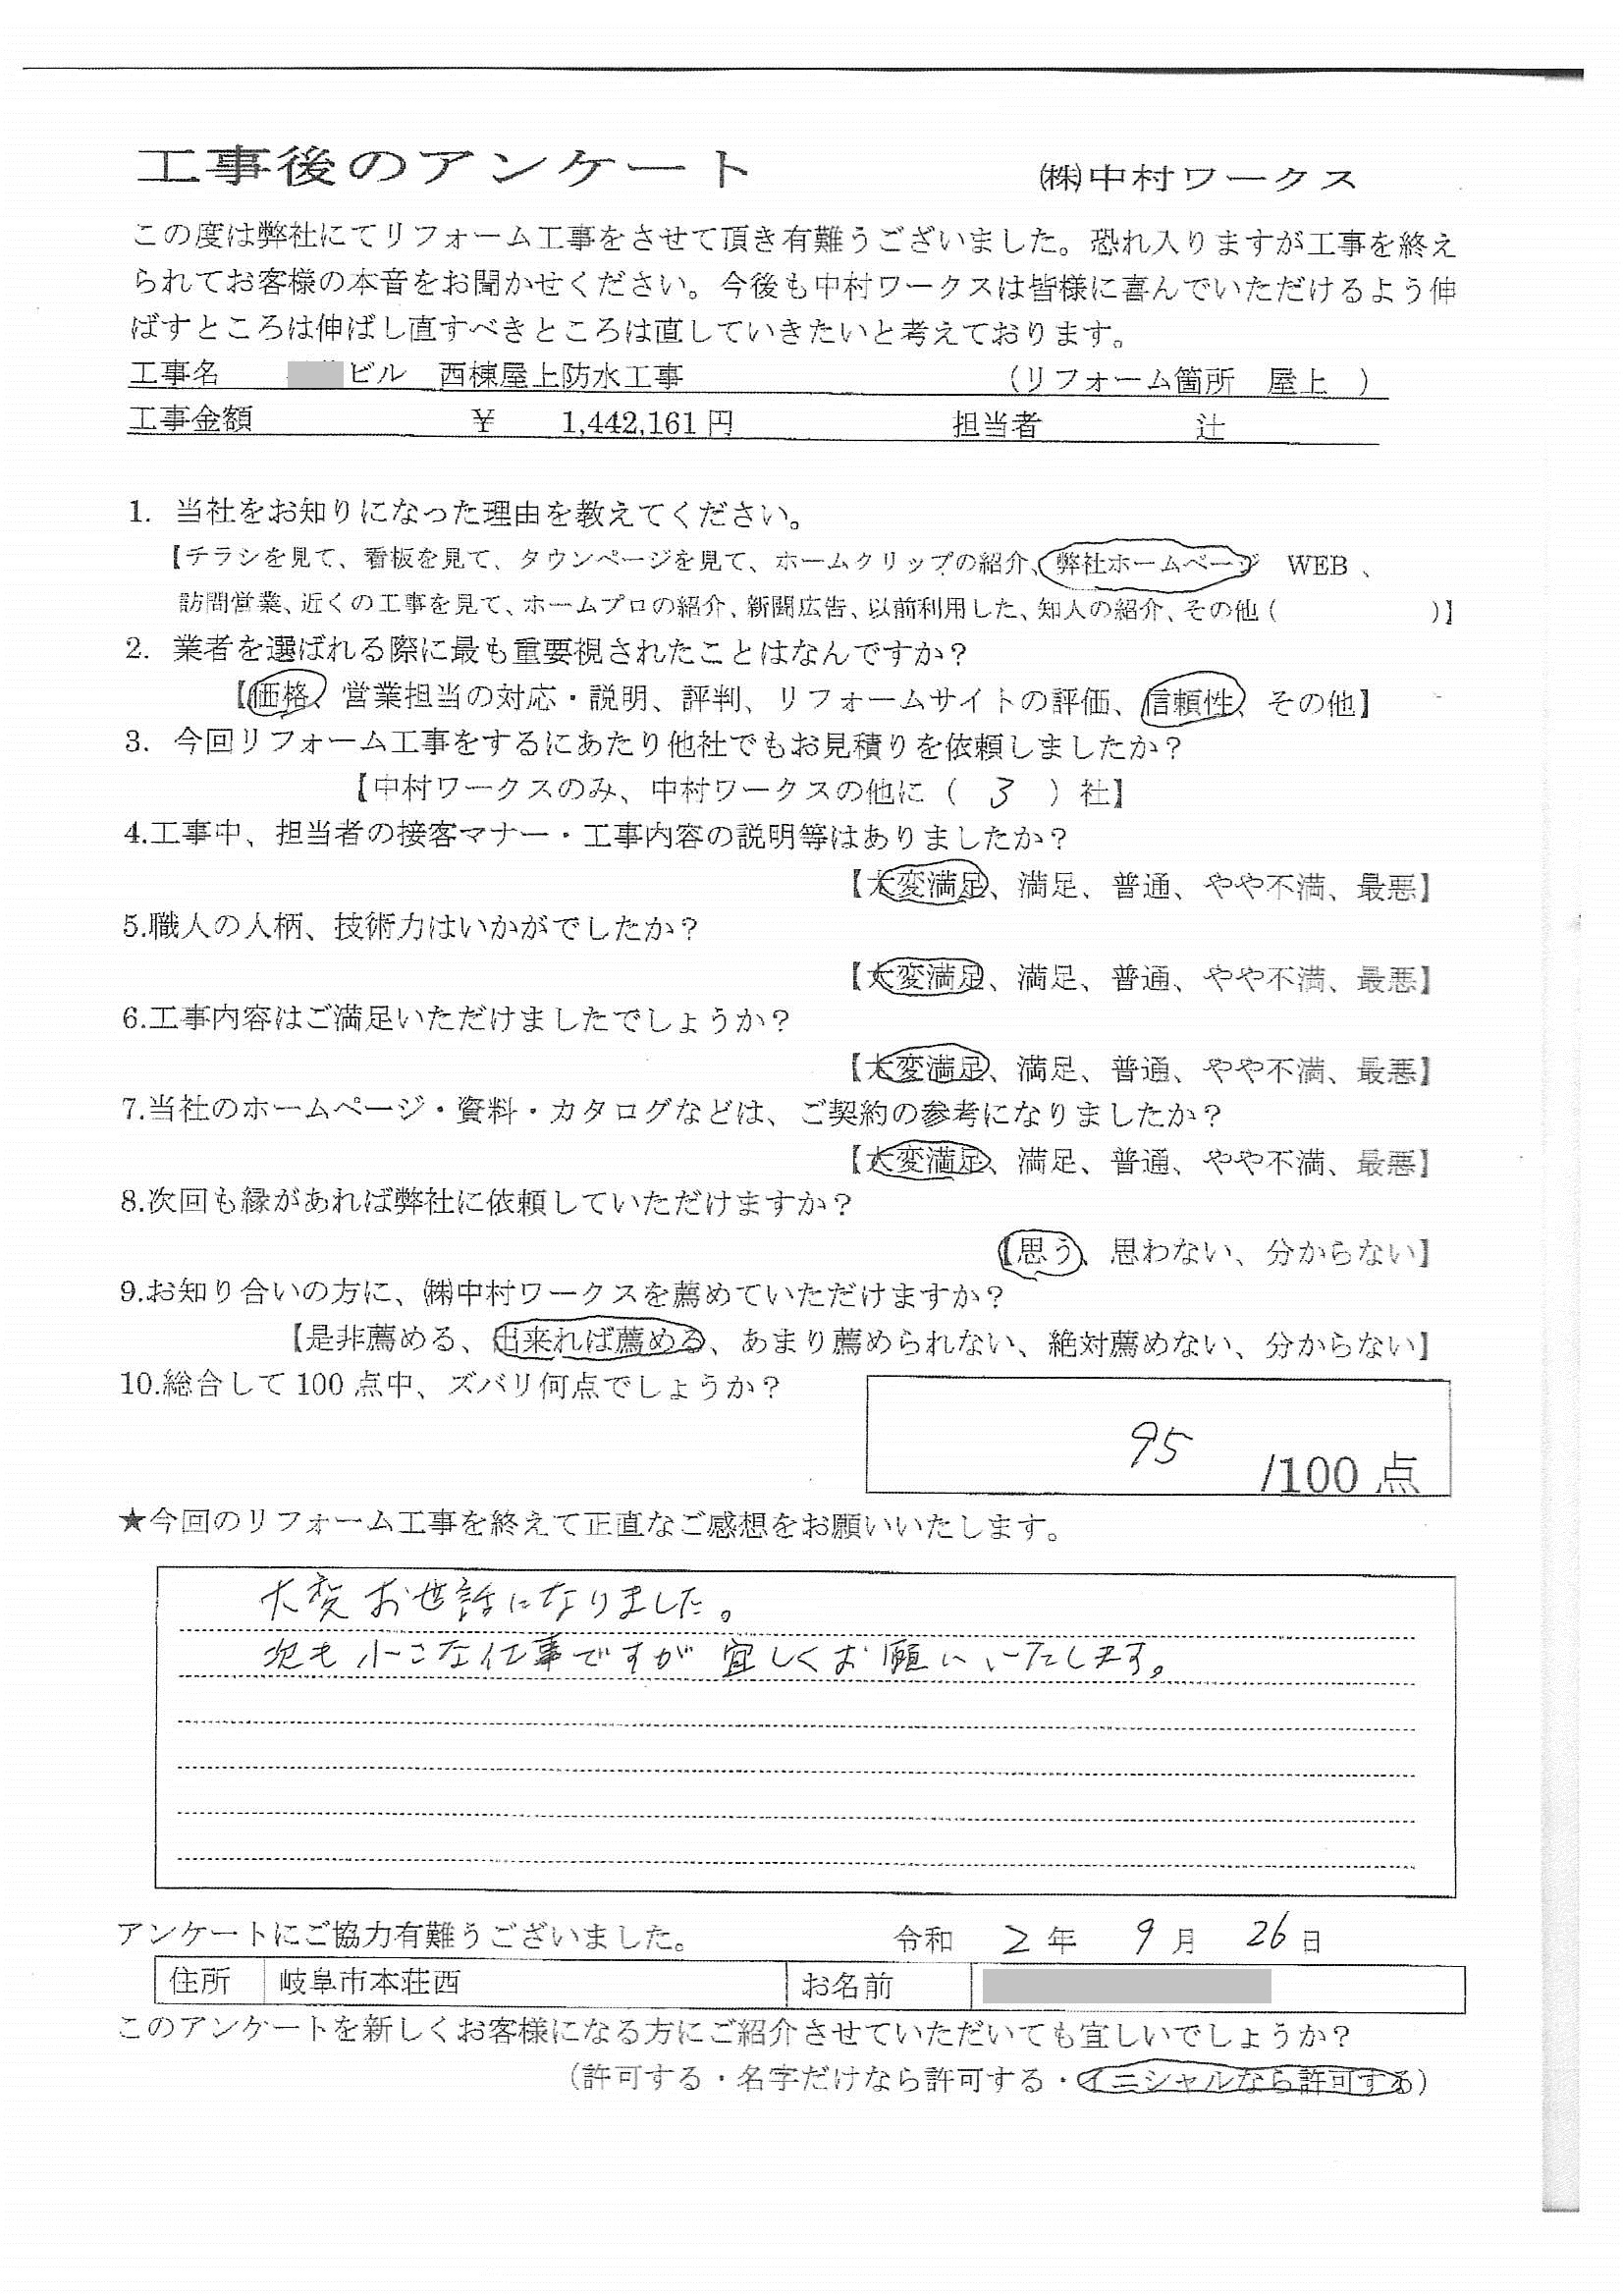 工事後のアンケート ㈱中村ワークス
この度は弊社にてリフォーム工事をさせて頂き有難うございました。恐れ入りますが工事を終え
られてお客様の本音をお聞かせください。今後も中村ワークスは皆様に喜んでいただけるよう伸
ばすところは伸ばし直すべきところは直していきたいと考えております。
工事名 ビル 西棟屋上防水工事 (リフォーム箇所 屋上 )
工事金額 ¥ 1,442,161円 担当者 辻
1. 当社をお知りになった理由を教えてください。
【チラシを見て、看板を見て、タウンページを見て、ホームクリップの紹介、弊社ホームページ WEB 、
訪問営業、近くの工事を見て、ホームプロの紹介、新聞広告、以前利用した、知人の紹介、その他 ( )】
2. 業者を選ばれる際に最も重要視されたことはなんですか？
【価格、営業担当の対応・説明、評判、リフォームサイトの評価、信頼性、その他】
3. 今回リフォーム工事をするにあたり他社でもお見積りを依頼しましたか？
【中村ワークスのみ、中村ワークスの他に（ 3 ）社】
4.工事中、担当者の接客マナー・工事内容の説明等はありましたか？
【大変満足、満足、普通、やや不満、最悪】
5.職人の人柄、技術力はいかがでしたか？
【大変満足、満足、普通、やや不満、最悪】
6.工事内容はご満足いただけましたでしょうか？
【大変満足、満足、普通、やや不満、最悪】
7.当社のホームページ・資料・カタログなどは、ご契約の参考になりましたか？
【大変満足、満足、普通、やや不満、最悪】
8.次回も縁があれば弊社に依頼していただけますか？
【思う、思わない、分からない】
9.お知り合いの方に、㈱中村ワークスを薦めていただけますか？
【是非薦める、出来れば薦める、あまり薦められない、絶対薦めない、分からない】
10.総合して 100 点中、ズバリ何点でしょうか？
95 /100 点
★今回のリフォーム工事を終えて正直なご感想をお願いいたします。
大変お世話になりました。
次も小さな仕事ですが宜しくお願いいたします。
アンケートにご協力有難うございました。 令和 2 年 9 月 26 日
住所 岐阜市本荘西 お名前
このアンケートを新しくお客様になる方にご紹介させていただいても宜しいでしょうか？
（許可する・名字だけなら許可する・イニシャルなら許可する）